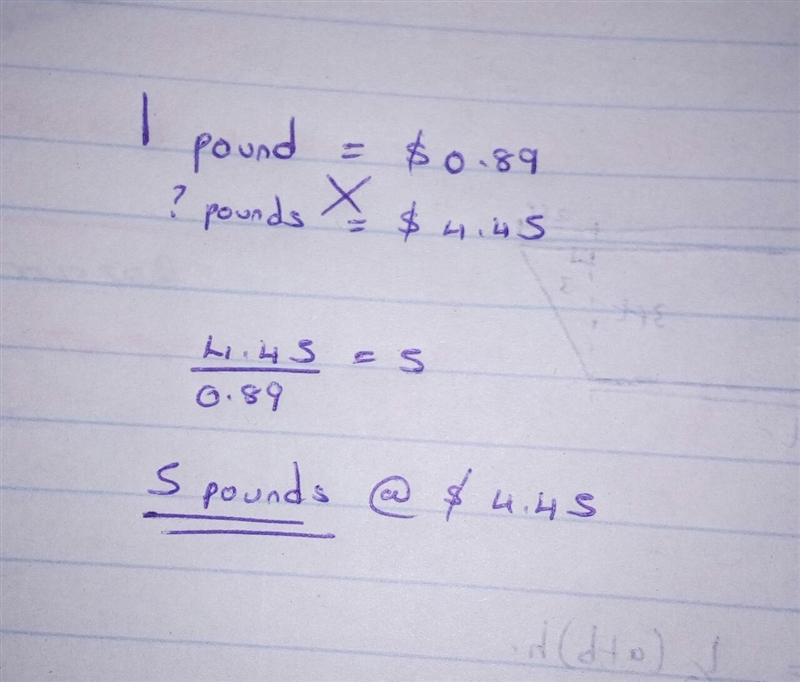 1 pound = $0.89
? pounds = $4.45
4.45 = 5
0.89
5 pounds @ $4.45
(a+b)h.